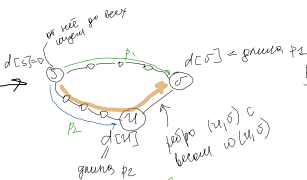 от неё до всех
ищем
d[s]=0
p1
d[v] = длина p1
s
v
p2
u
d[u]
||
длина p2
ребро (u,v) с
весом w(u,v)